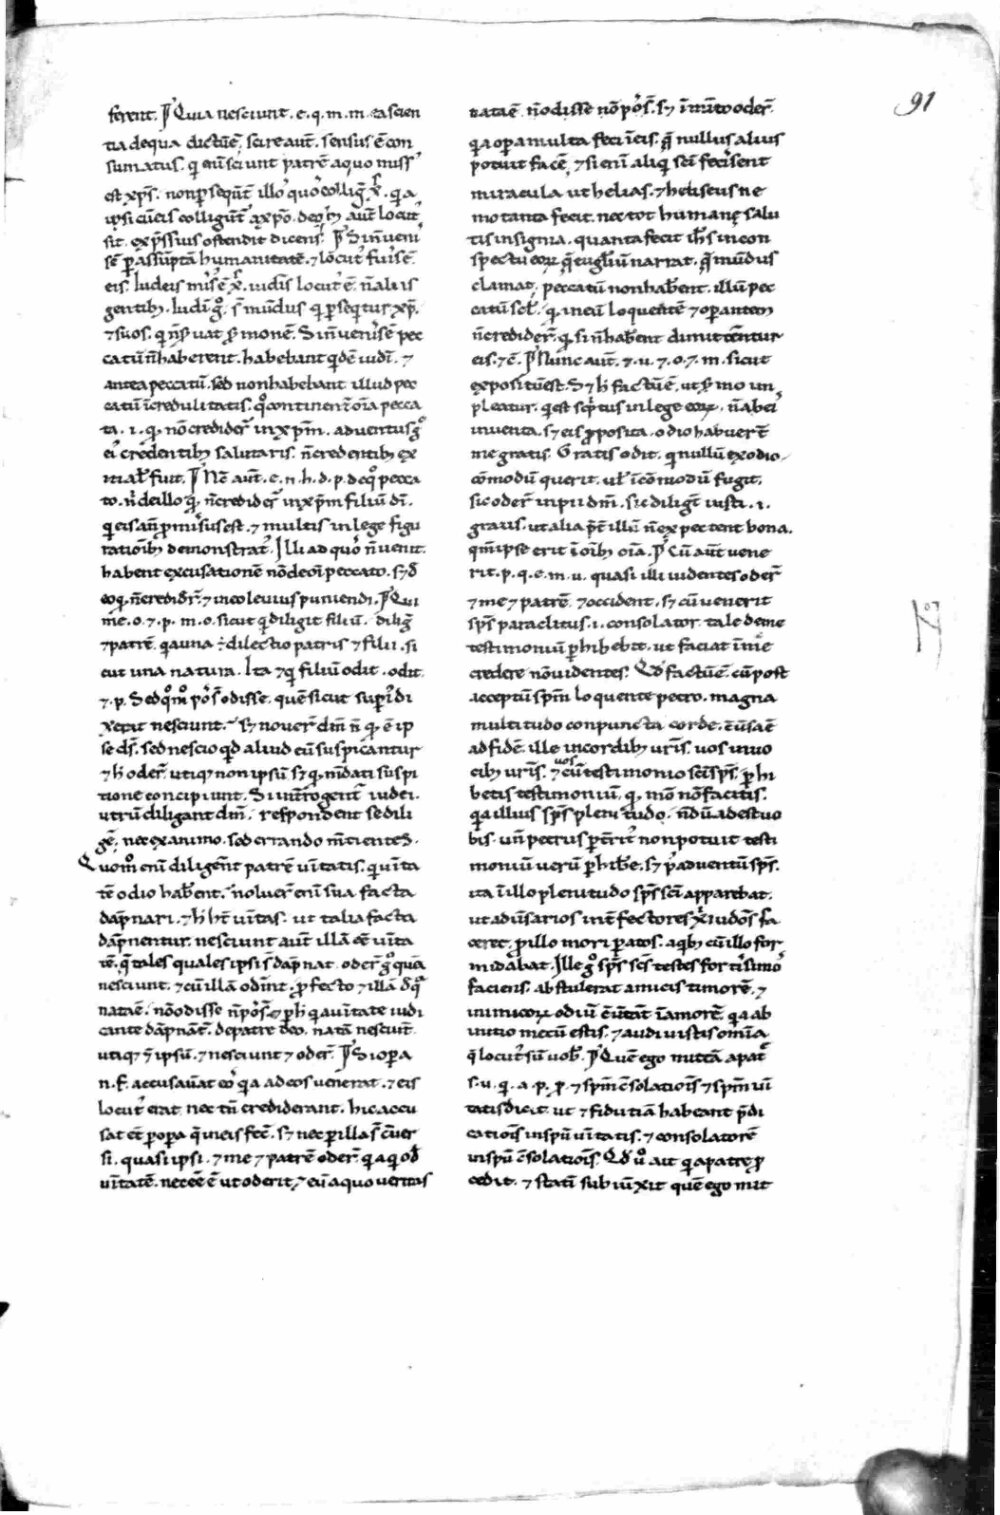 91
ferent. Quia nesciunt. e. q. m. m. ea scien
tia de qua dictū ē, scire aut̄. sensus ē con
sumatus. q̇ eni sciunt patrē a quo miss'
est xp̄s. non ꝑseqūt̄ illo
ipsi cū eis colligūt̄ a xp̄o. aut̄ locut'
sit. exp̄ssius ostendit dicens. Si n̄ veni
sē ꝑ assūptā humanitatē. ⁊ locut' fuisē
eis. Iudeis mis' ē x̄. iudis locut' ē. n̄ aliis
gentib;. Iudi g°. s̄ mūdus q̇ ꝑseq̄tur xp̄.
⁊ suos. q̇ n̄ s'uat s'monē. Si n̄ venisē pec
catū n̄ haberent. habebant qdē iudi. ⁊
antea peccatū. sed non habebant illud pec
catū īcredulitatis. q° continent̄ oīa pecca
ta. .i. q. nō credider̄ in xp̄m. adventus g°
ei' credentib; salutaris. n̄ credentib; ex
itial' fuit. Nē aut̄. e. n. h. d. p. de q° pecca
to. n̄ de illo q. n̄ credider̄ in xp̄m filiū dī.
q̇ eis an̄ pmisus est. ⁊ multis in lege figu
rationib; demonstrat'. Illi ad quo' n̄ venit.
habent excusationē nō de oi peccato. s; d̄
eo q. n̄ credider̄. ⁊ in eo levius puniendi. Qui
me. o. ⁊. p. m. o. sicut q̇ diligit filiū. diliḡ
⁊ patrē. q̇a una ē dilectio patris ⁊ filii. si
cut una natura. Ita ⁊ q̇ filiū odit. odit
⁊. p. Sed qm° pos̄ odisse. quē sicut sup̄ di
xerit nesciunt. s; nover̄ dm̄ n̄ q. ē ip
se ds̄. sed nescio qd aliud eū suspicantur
⁊ h oder̄. utiq; non ipsū s; q. mdati suspi
tione concipiunt. Si int̄rogent' iudei.
utrū diligant dm̄. respondent se dili
ge. nec ex animo. sed errando mtientes.
Quom° eni diligent patrē vitatis. q̇ vita
tē odio hab̄ent. noluer̄ eni sua facta
dāpnari. ⁊ h ht̄ vitas. ut talia facta
dāpnentur. nesciunt aut̄ illā eē vita
tē. q̄ tales quales ipsi s̄ dāpnat. oder̄ g° quā
nesciunt. ⁊ cū illā odint. ꝓfecto ⁊ illā d̄ q̇
nata ē. nō odisse n̄ pos̄. ⁊ ꝑ h q̇ a vitate iudi
cante dāpnāt'. de patre deo. natā nesciūt'
utiq; ⁊ ipsū. ⁊ nesciunt ⁊ oder̄. Si opera
n. f. accusavat eo' q̇a ad eos venerat. ⁊ eis
locut' erat. nec tn̄ crediderant. hic accu
sat et̄ ꝑ opa q̄ in eis fec̄. s; nec ꝑ illa s̄ cūer
si. quasi ipsi. ⁊ me ⁊ patrē oder̄. q̇a q̇ od'
vitatē. necesē ē ut oderit ⁊ eū a quo veritas
nata ē. n̄ odisse nō pos̄. s; īmito oder̄.
q̇a opa multa feci ī eis. q̄ nullus alius
potuit facē. ⁊ si eni aliq̇ scī fecisent
miracula. ut helias. ⁊ heliseus ne
mo tanta fecit. nec tot humanę salu
tis insignia. quanta fecit ih̄s in con
spectu eoꝝ. q̄ eūgliū narrat. q̄ mūdus
clamat. peccatū non hab̄ent. illū pec
catū scl'. q. in eū loquentē ⁊ opantem
n̄ credider̄. q. si n̄ hab̄ent dimitterentur
eis. ⁊ ē. Nunc aut̄. ⁊. v. ⁊. o. ⁊. m. sicut
expositū est. S; h factū ē. ut s'mo im
pleatur. q̇ est sc̄ptus in lege eoꝝ. n̄ ab ei'
inventa. s; eis ꝓposita. odio habuer̄
me gratis. Gratis odit. q̇ nullū ex odio
cōmodū querit. ul' īcōmodū fugit.
sic oder̄ inpii dm̄. sic diligt̄ iusti. .i.
gratis. ut alia p̄t illū n̄ expectent bona.
qm̄ ipse erit ī oib; oia. Cū aut̄ vene
rit. p. q. e. m. v. quasi illi videntes oder̄
⁊ me ⁊ patrē. ⁊ occident. s; cū venerit
sps̄ paraclitus. .i. consolator. tale de me
testimoniū ꝑhibebit. ut faciat ī me
credere nō videntes. Qd' factū ē. cū post
acceptū spm̄ loquente petro. magna
multitudo conpuncta corde. cūsa ē
ad fidē. ille in cordib; vris̄. vos in vo
cib; vris̄. ⁊ vos cū testimonio scī sps̄. ꝑhi
betis testimoniū. q. mo nō facitis.
q̇a illius sps̄ plenitudo. n̄dū adest vo
bis. un̄ petrus ꝑterrit' non potuit testi
moniū verū ꝑhib̄e. s; ꝑ adventū sps̄.
ita ī illo plenitudo sps̄ scī apparebat.
ut adv̄sarios intfectores xi iudos̄ fa
ceret. ꝓ illo mori paratos. a qb; cū illo for
midabat. Ille g° sps̄ scs̄ testes fortisimo'
faciens. abstulerat amicis timorē. ⁊
inimicoꝝ odiū cūtāt īamorē. q̇a ab
initio mecū estis. ⁊ audivistis omīa
q̄ locut' sū vob'. Quē ego mittā a pat'
s. v. q. a. p. p. ⁊ spm̄ c̄solatiois ⁊ spm̄ vi
tatis dicit. ut ⁊ fidutiā habeant p̄di
catiois in spū vitatis. ⁊ consolatorē
in spū c̄solatiois. Qd' v° ait q̇ a patre p
cedit. ⁊ statī subiūxit quē ego mit